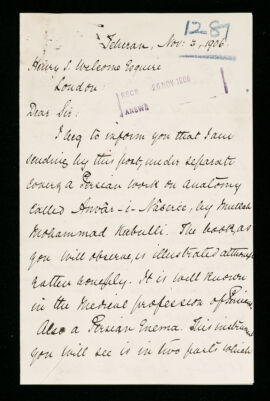 1287
Teheran, Nov: 3, 1906.
Henry S. Wellcome Esquire
RECD 26 NOV 1906
London.
ANSWD
Dear Sir:
I beg to inform you that I am
sending by this post, under separate
cover, a Persian work on anatomy
called Anvâr-i-Nâseree, by Mullah
Mohammad Kabulli. The book, as
you will observe, is illustrated although
rather roughly. It is well known
in the medical profession of Persia.
Also a Persian Enema. This instrument
you will see is in two parts which